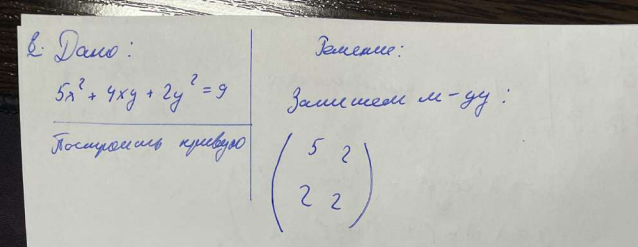 2. Дано:
5x² + 4xy + 2y² = 9
Построить кривую
Решение:
Запишем м-цу:
( 5 2
2 2 )